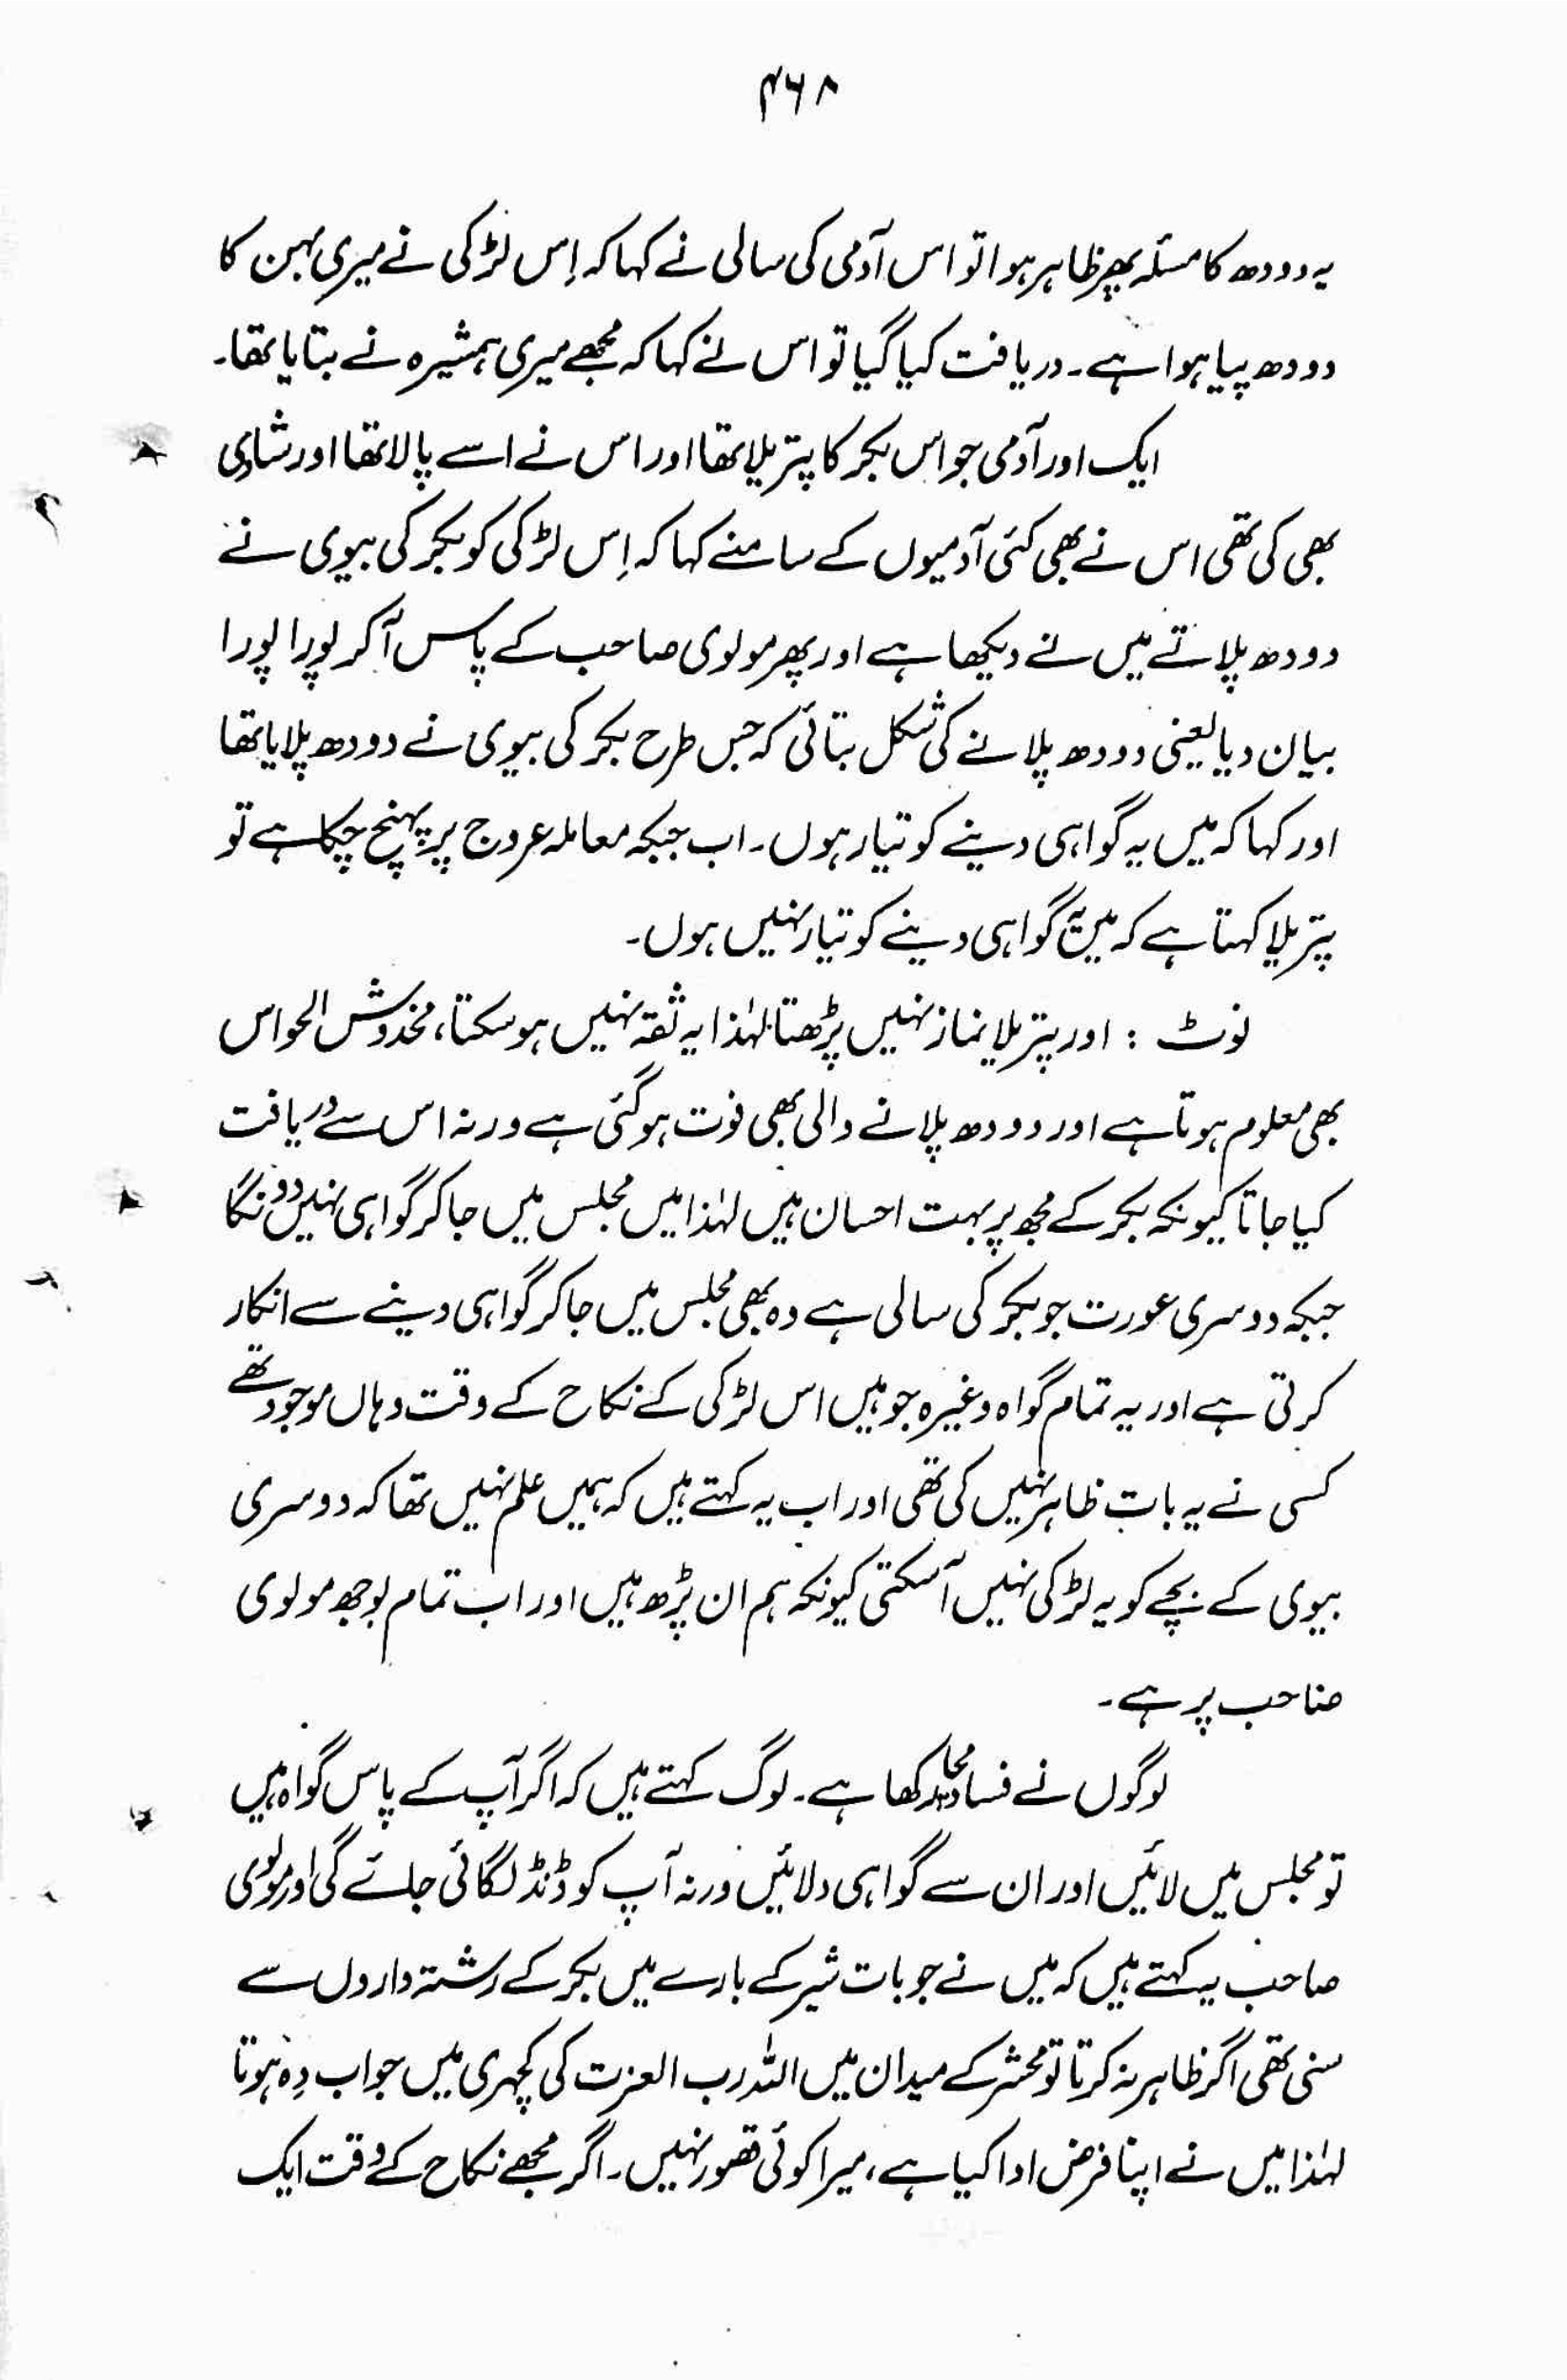 ۴۶۸
یہ دودھ کا مسئلہ پھر ظاہر ہوا تو اس آدمی کی سالی نے کہا کہ اِس لڑکی نے میری بہن کا
دودھ پیا ہوا ہے۔ دریافت کیا گیا تو اس نے کہا کہ مجھے میری ہمشیرہ نے بتایا تھا۔
ایک اور آدمی جو اس بکر کا پتریلا تھا اور اس نے اسے پالا تھا اور شادی
بھی کی تھی اس نے بھی کئی آدمیوں کے سامنے کہا کہ اِس لڑکی کو بکر کی بیوی نے
دودھ پلاتے میں نے دیکھا ہے اور پھر مولوی صاحب کے پاس آ کر پورا پورا
بیان دیا یعنی دودھ پلانے کی شکل بتائی کہ جس طرح بکر کی بیوی نے دودھ پلایا تھا
اور کہا کہ میں یہ گواہی دینے کو تیار ہوں۔ اب جبکہ معاملہ عروج پر پہنچ چکا ہے تو
پتریلا کہتا ہے کہ میں یہ گواہی دینے کو تیار نہیں ہوں۔
نوٹ : اور پتریلا نماز نہیں پڑھتا لہٰذا یہ ثقہ نہیں ہو سکتا، مخدوش الحواس
بھی معلوم ہوتا ہے اور دودھ پلانے والی بھی فوت ہو گئی ہے ورنہ اس سے دریافت
کیا جاتا کیونکہ بکر کے مجھ پر بہت احسان ہیں لہٰذا میں مجلس میں جا کر گواہی نہیں دونگا
جبکہ دوسری عورت جو بکر کی سالی ہے وہ بھی مجلس میں جا کر گواہی دینے سے انکار
کرتی ہے اور یہ تمام گواہ وغیرہ جو ہیں اس لڑکی کے نکاح کے وقت وہاں موجود تھے
کسی نے یہ بات ظاہر نہیں کی تھی اور اب یہ کہتے ہیں کہ ہمیں علم نہیں تھا کہ دوسری
بیوی کے بچے کو یہ لڑکی نہیں آ سکتی کیونکہ ہم ان پڑھ ہیں اور اب تمام بوجھ مولوی
صاحب پر ہے۔
لوگوں نے فساد مچا رکھا ہے۔ لوگ کہتے ہیں کہ اگر آپ کے پاس گواہ ہیں
تو مجلس میں لائیں اور ان سے گواہی دلائیں ورنہ آپ کو ڈنڈ لگائی جائے گی اور مولوی
صاحب یہ کہتے ہیں کہ میں نے جو بات شیر کے بارے میں بکر کے رشتہ داروں سے
سنی تھی اگر ظاہر نہ کرتا تو محشر کے میدان میں اللہ رب العزت کی کچہری میں جواب دِہ ہوتا
لہٰذا میں نے اپنا فرض ادا کیا ہے، میرا کوئی قصور نہیں۔ اگر مجھے نکاح کے وقت ایک